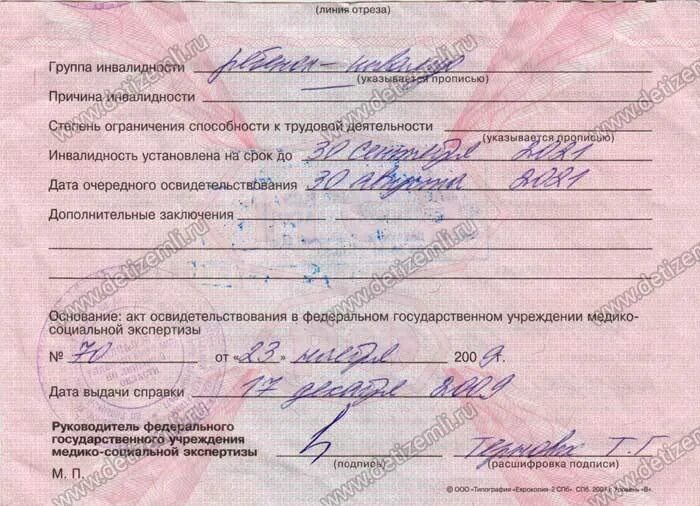 (линия отреза)
Группа инвалидности ребенок-инвалид
(указывается прописью)
Причина инвалидности
Степень ограничения способности к трудовой деятельности
(указывается прописью)
Инвалидность установлена на срок до 30 сентября 2021
Дата очередного освидетельствования 30 августа 2021
Дополнительные заключения
Основание: акт освидетельствования в федеральном государственном учреждении медико-
социальной экспертизы
№ 70 от «23» ноября 2009г.
Дата выдачи справки 17 декабря 2009
Руководитель федерального
государственного учреждения
медико-социальной экспертизы Т.Г
(подпись) (расшифровка подписи)
М. П.
© ООО «Типография «Еврокопия-2 СПб». СПб. 2007 г. Уровень «В»
www.detizemli.ru